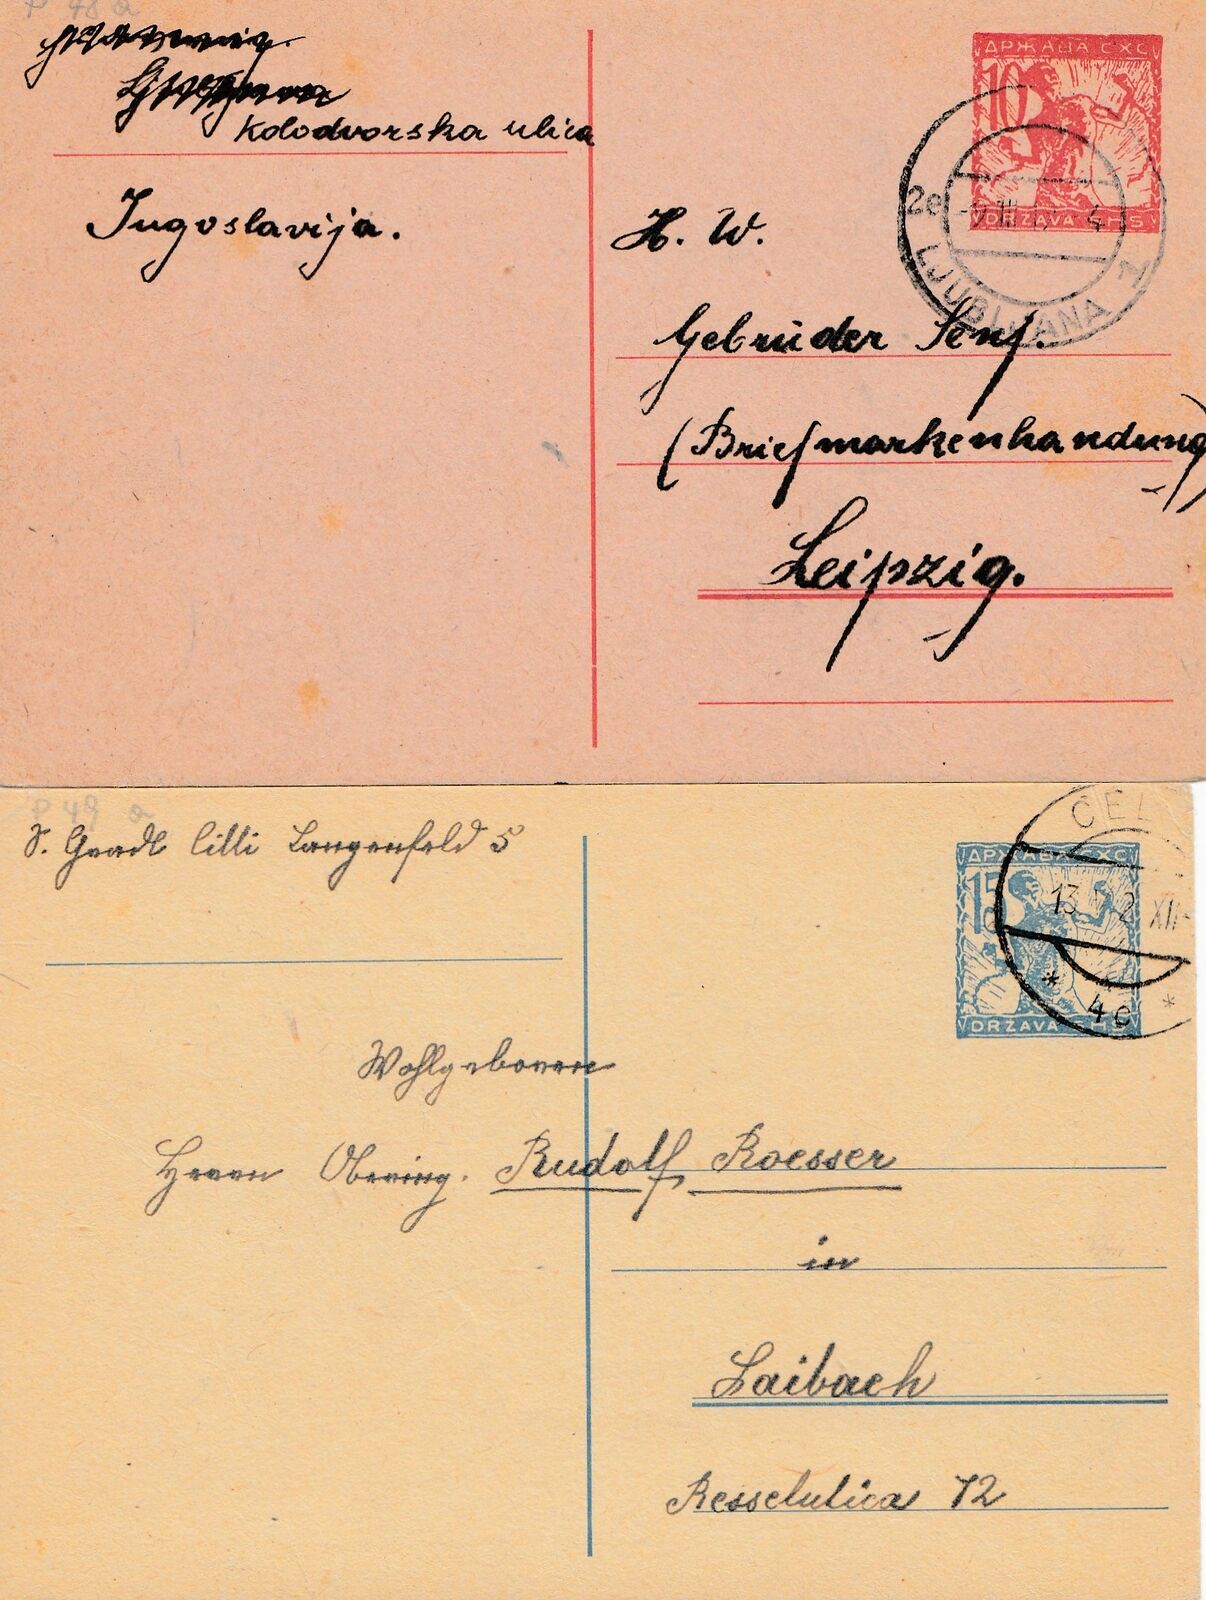 P 48 a
Kolodvorska ulica
Jugoslavija.
ДРЖАВА СХС
10
DRZAVA SHS
2e
LJUBLJANA 1
H. W.
Gebrüder Senf.
(Briefmarkenhandung)
Leipzig.
P 49 a
S. Gradt Cilli Langenfeld 5
ДРЖАВА СХС
15
DRZAVA SHS
CEL
13
2 XII
* 4c *
Wohlgeboren
Herrn Obering. Rudolf Roesser
in
Laibach
Resselulica 12